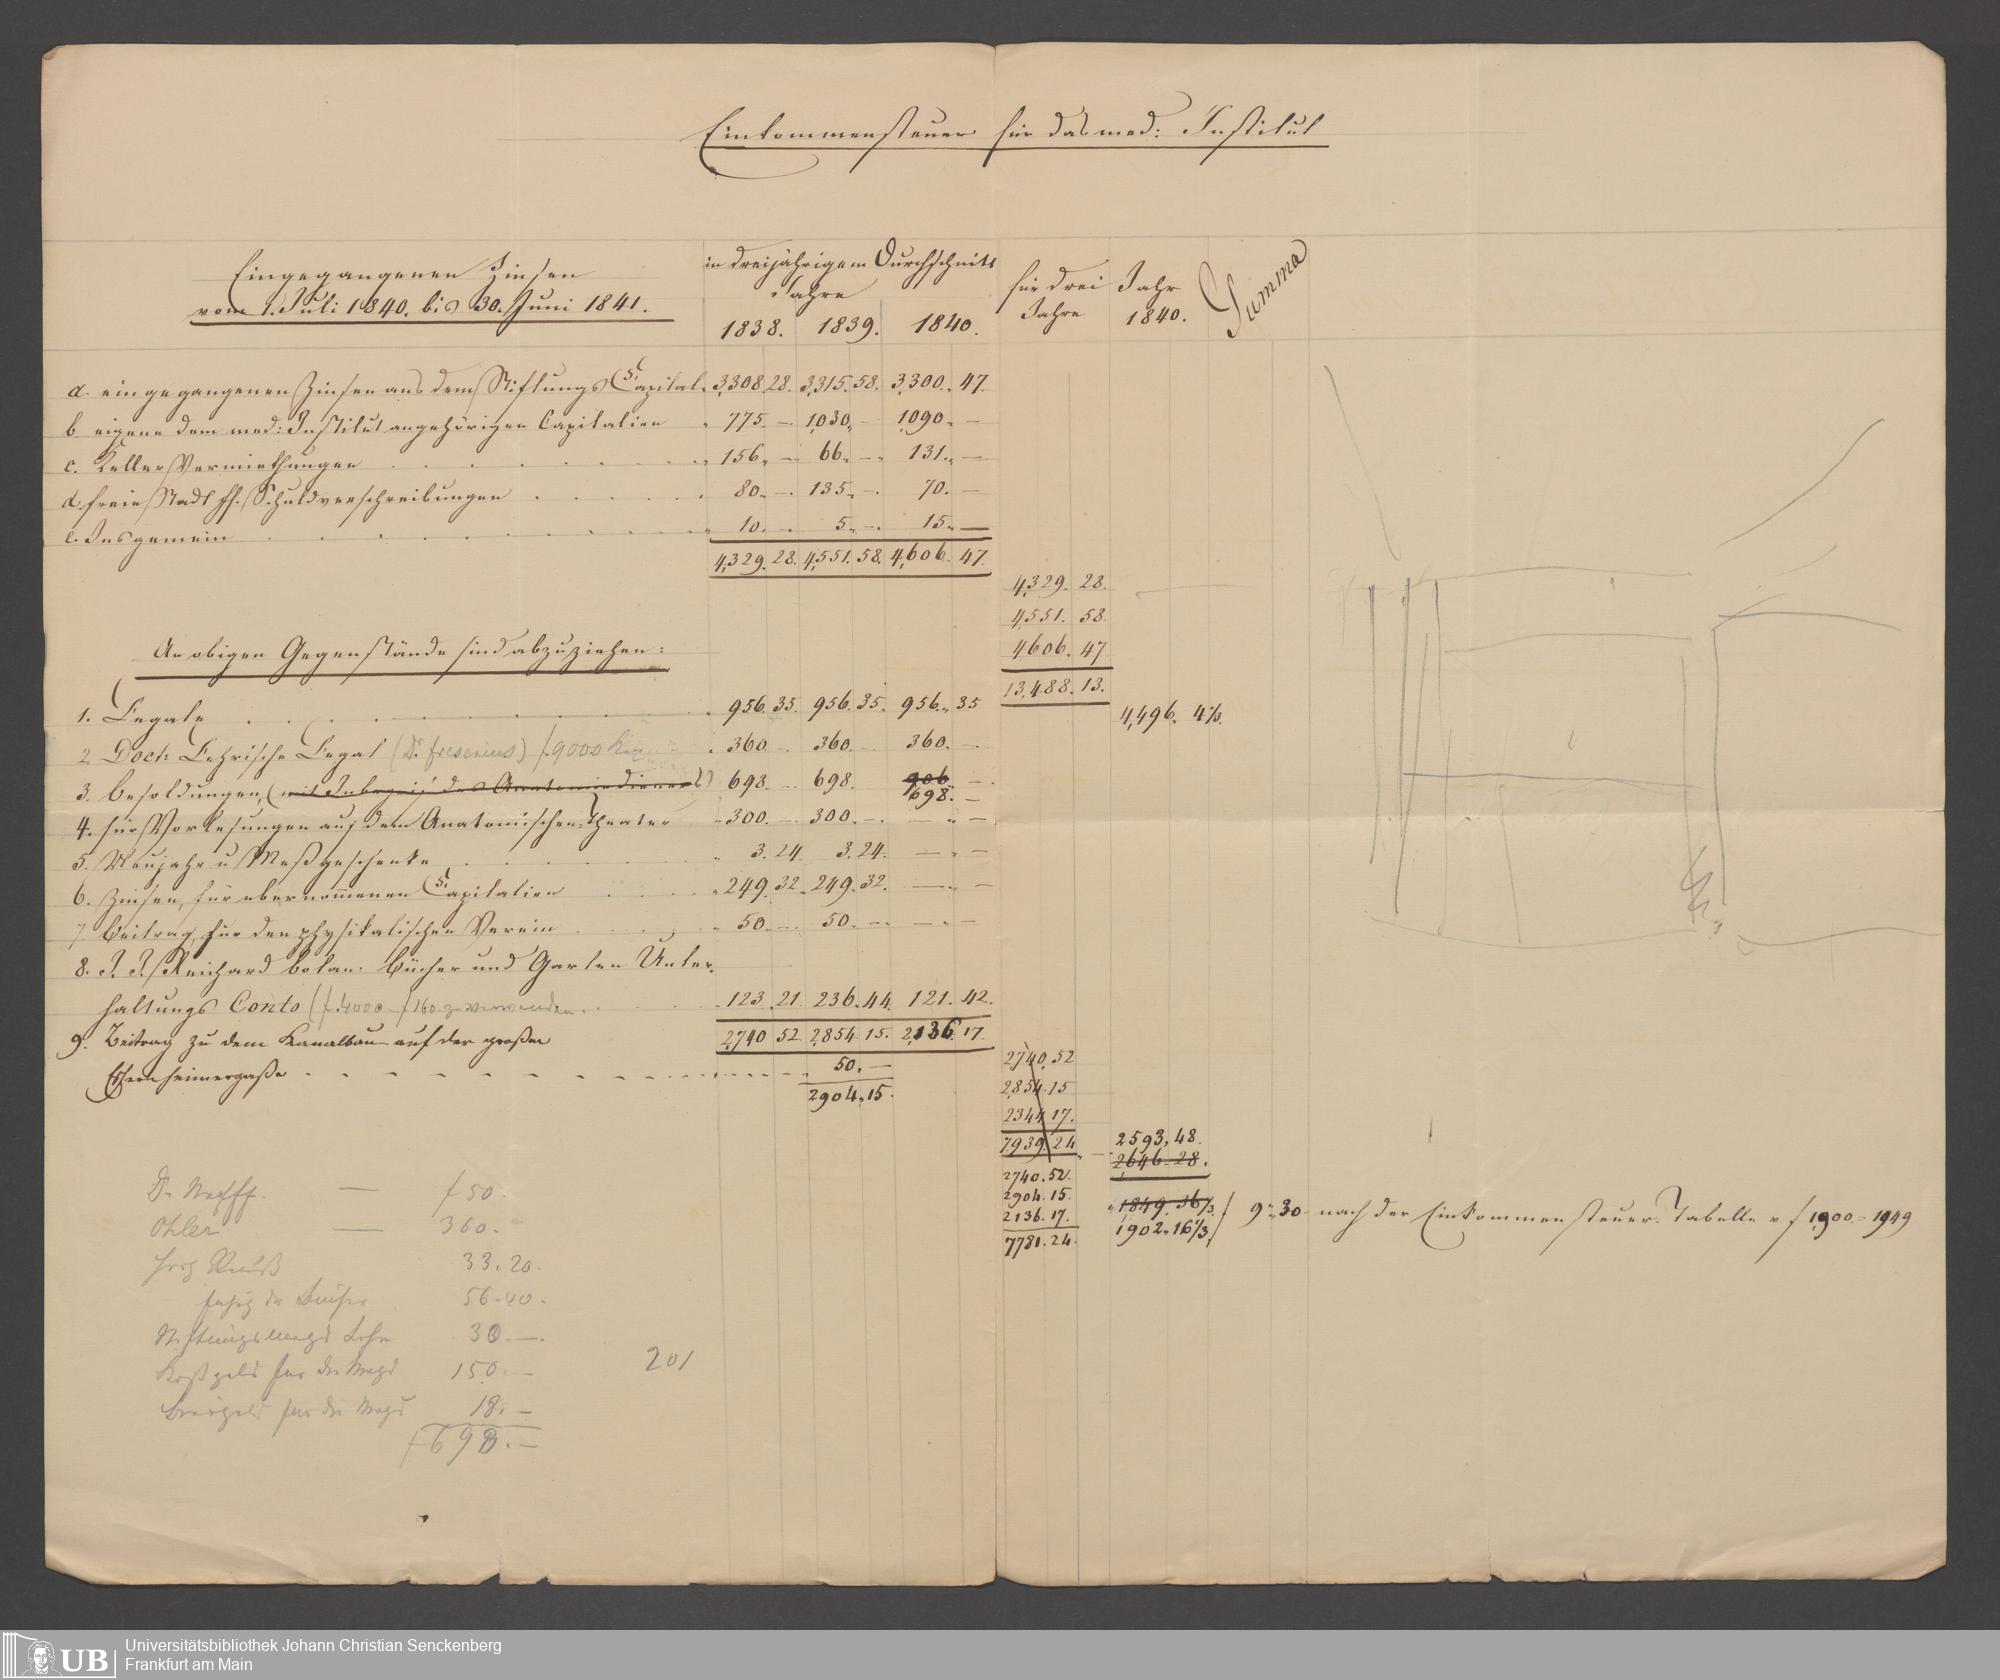 Einkommensteuer für das med: Institut
Eingegangenen Zinsen
vom 1. Juli 1840. bis 30. Juni 1841.
in dreijährigem Durchschnitt
Jahre
1838. 1839. 1840.
für drei
Jahre
Jahr
1840.
Summa
a. eingegangenen Zinsen aus dem Stiftungs Capital 3,308. 28. 3,315. 58. 3,300. 47.
b. eigene dem med: Institut angehörigen Capitalien 775. — 1,030. — 1,090. —
c. Keller Vermiethungen 156. — 66. — 131. —
d. freie Stadt ff. Schuldverschreibungen 80. — 135. — 70. —
e. Insgemein 10. — 5. — 15. —
4,329. 28. 4,551. 58. 4,606. 47.
4,329. 28.
4,551. 58.
4,606. 47
13,488. 13.
4,496. 4⅓.
An obigen Gegenstände sind abzuziehen:
1. Legate 956. 35. 956. 35. 956. 35
2. Doct: Lehrische Legat (Dr. fresenius) f. 9000 360. — 360. — 360. —
3. Besoldungen, (mit Inbegrif des Anatomiedieners) 698. — 698. 906 —
698. —
4. für Vorlesungen auf dem Anatomischen Theater 300. — 300. — — —
5. Neujahr u Meßgeschenke 3. 24. 3. 24. — —
6. Zinsen, für übernommenen Capitalien 249. 32. 249. 32. — —
7. Beitrag, für den physikalischen Verein 50. — 50. — — —
8. J. J. Reichard botan: Bücher und Garten Unter-
haltungs Conto (f. 4000 f 160 zu verwenden 123. 21. 236. 44. 121. 42.
2,740 52 2,854 15. 2,136 17.
9. Beitrag zu dem Kanalbau auf der großen
Eschenheimergaße 50. —
2904. 15.
2,740. 52
2,854. 15
2344. 17.
7939. 24
2593, 48.
2646. 28.
2740. 52.
2904. 15.
2136. 17.
7781. 24.
1849. 36⅓
1902. 16⅓
9. 30 nach der Einkommensteuer Tabelle v f 1,900 – 1949
Dr. Neeff. — f 50.
Ohler — 360.
33. 20.
56. 40.
Stiftungsmagd Lohn 30. —
Kostgeld für die Magd 150. —
für die Magd 18. —
f 698. —
201
Universitätsbibliothek Johann Christian Senckenberg
Frankfurt am Main
UB